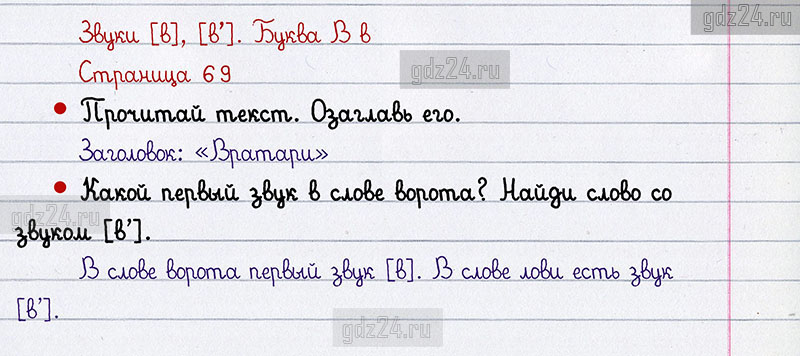 gdz24.ru
Звуки [в], [в’]. Буква В в
Страница 69
gdz24.ru
• Прочитай текст. Озаглавь его.
Заголовок: «Вратари»
• Какой первый звук в слове ворота? Найди слово со
gdz24.ru
звуком [в’].
В слове ворота первый звук [в]. В слове лови есть звук
[в’].
gdz24.ru